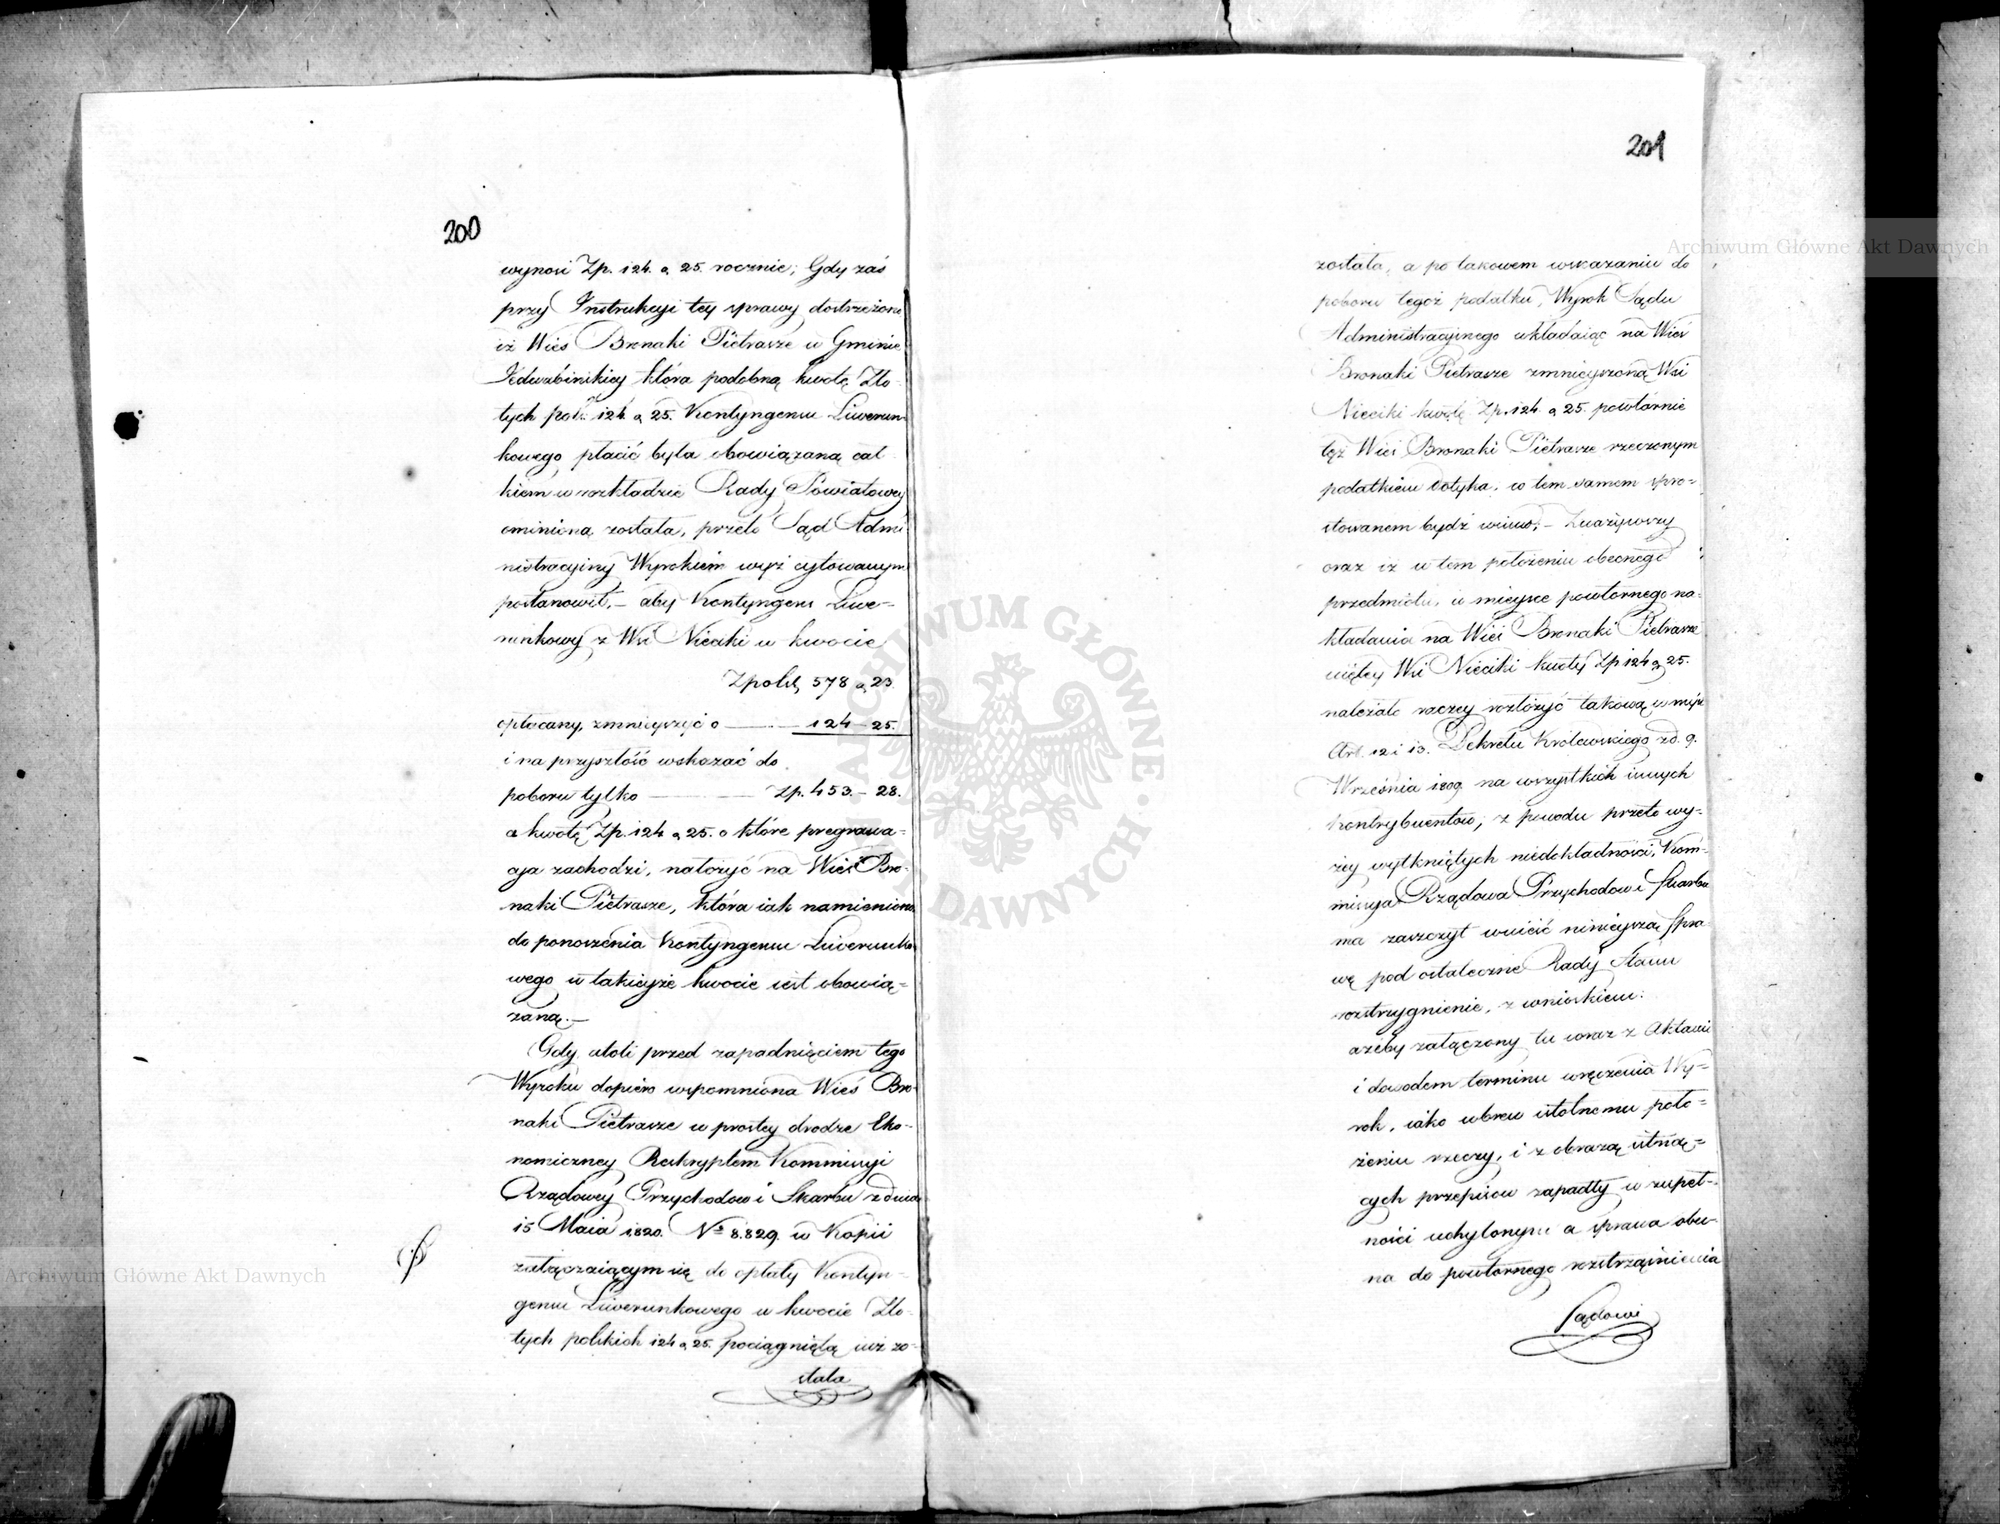 200
wynosi Zp. 124. g 25. rocznie; Gdy zaś
przy Instrukcyi tey sprawy dostrzeżono
iż Wieś Bronaki Pietrasze w Gminie
Jedwabińskiey która podobną kwotę Zło-
tych pols. 124 g 25. Kontyngensu Liwerun-
kowego płacić była obowiązaną cał
kiem w rozkładzie Rady Powiatowey
ominioną została, przeto Sąd Admi-
nistracyiny Wyrokiem wyż cytowanym
postanowił, – aby Kontyngens Liwe-
runkowy z Wsi Nieciki w kwocie
Zpolsk, 578 g 23.
opłacany, zmnieyszyć o — 124 — 25.
i na przyszłość wskazać do
poboru tylko — Zp. 453. — 28.
a kwotę Zp. 124 g 25. o które pregrawa-
cya zachodzi, nałożyć na Wieś Bro-
naki Pietrasze, która iak namieniono
do ponoszenia Kontyngensu Liwerunko-
wego w takieyże kwocie iest obowią-
zaną. —
Gdy atoli przed zapadnięciem tego
Wyroku dopiero wspomniona Wieś Bro-
naki Pietrasze w prostey drodze Eko-
nomiczney Reskryptem Kommissyi
Rządowey Przychodow i Skarbu z dnia
15 Maia 1820. No 8.829. w Kopii
załączaiącym się do opłaty Kontyn-
gensu Liwerunkowego w kwocie Zło-
tych polskich 124 g 25. pociągniętą iuż zo-
stała
201
została, a po takowem wskazaniu do
poboru tegoż podatku, Wyrok Sądu
Administracyinego wkładaiąc na Wieś
Bronaki Pietrasze zmnieyszoną Wsi
Nieciki kwotę Zp. 124 g 25. powtórnie
też Wieś Bronaki Pietrasze rzeczonym
podatkiem dotyka, w tem samem spro-
stowanem bydź winno; – Zważywszy
oraz iż w tem położeniu obecnego
przedmiotu, w mieysce powtornego na-
kładania na Wieś Bronaki Pietrasze
uiętey Wsi Nieciki kwoty Zp 124 g 25.
należało raczey rozłożyć takową w myśl
Art. 12 i 13. Dekretu Królewskiego z d. 9.
Września 1809 na wszystkich innych
Kontrybuentow; z powodu przeto wy-
żey wytkniętych niedokładności, Kom-
missya Rządowa Przychodow i Skarbu
ma zaszczyt wnieść ninieyszą Spra-
wę pod ostateczne Rady Stanu
rozstrzygnienie, z wnioskiem:
ażeby załączony tu wraz z Aktami
i dowodem terminu wręczenia Wy-
rok, iako wbrew istotnemu poło-
żeniu rzeczy, i z obrazą istnią-
cych przepisow zapadły w zupeł-
ności uchylonym a sprawa obu-
na do powtornego rozstrząśnienia
Sądowi
Archiwum Główne Akt Dawnych
Archiwum Główne Akt Dawnych
ARCHIWUM GŁÓWNE AKT DAWNYCH